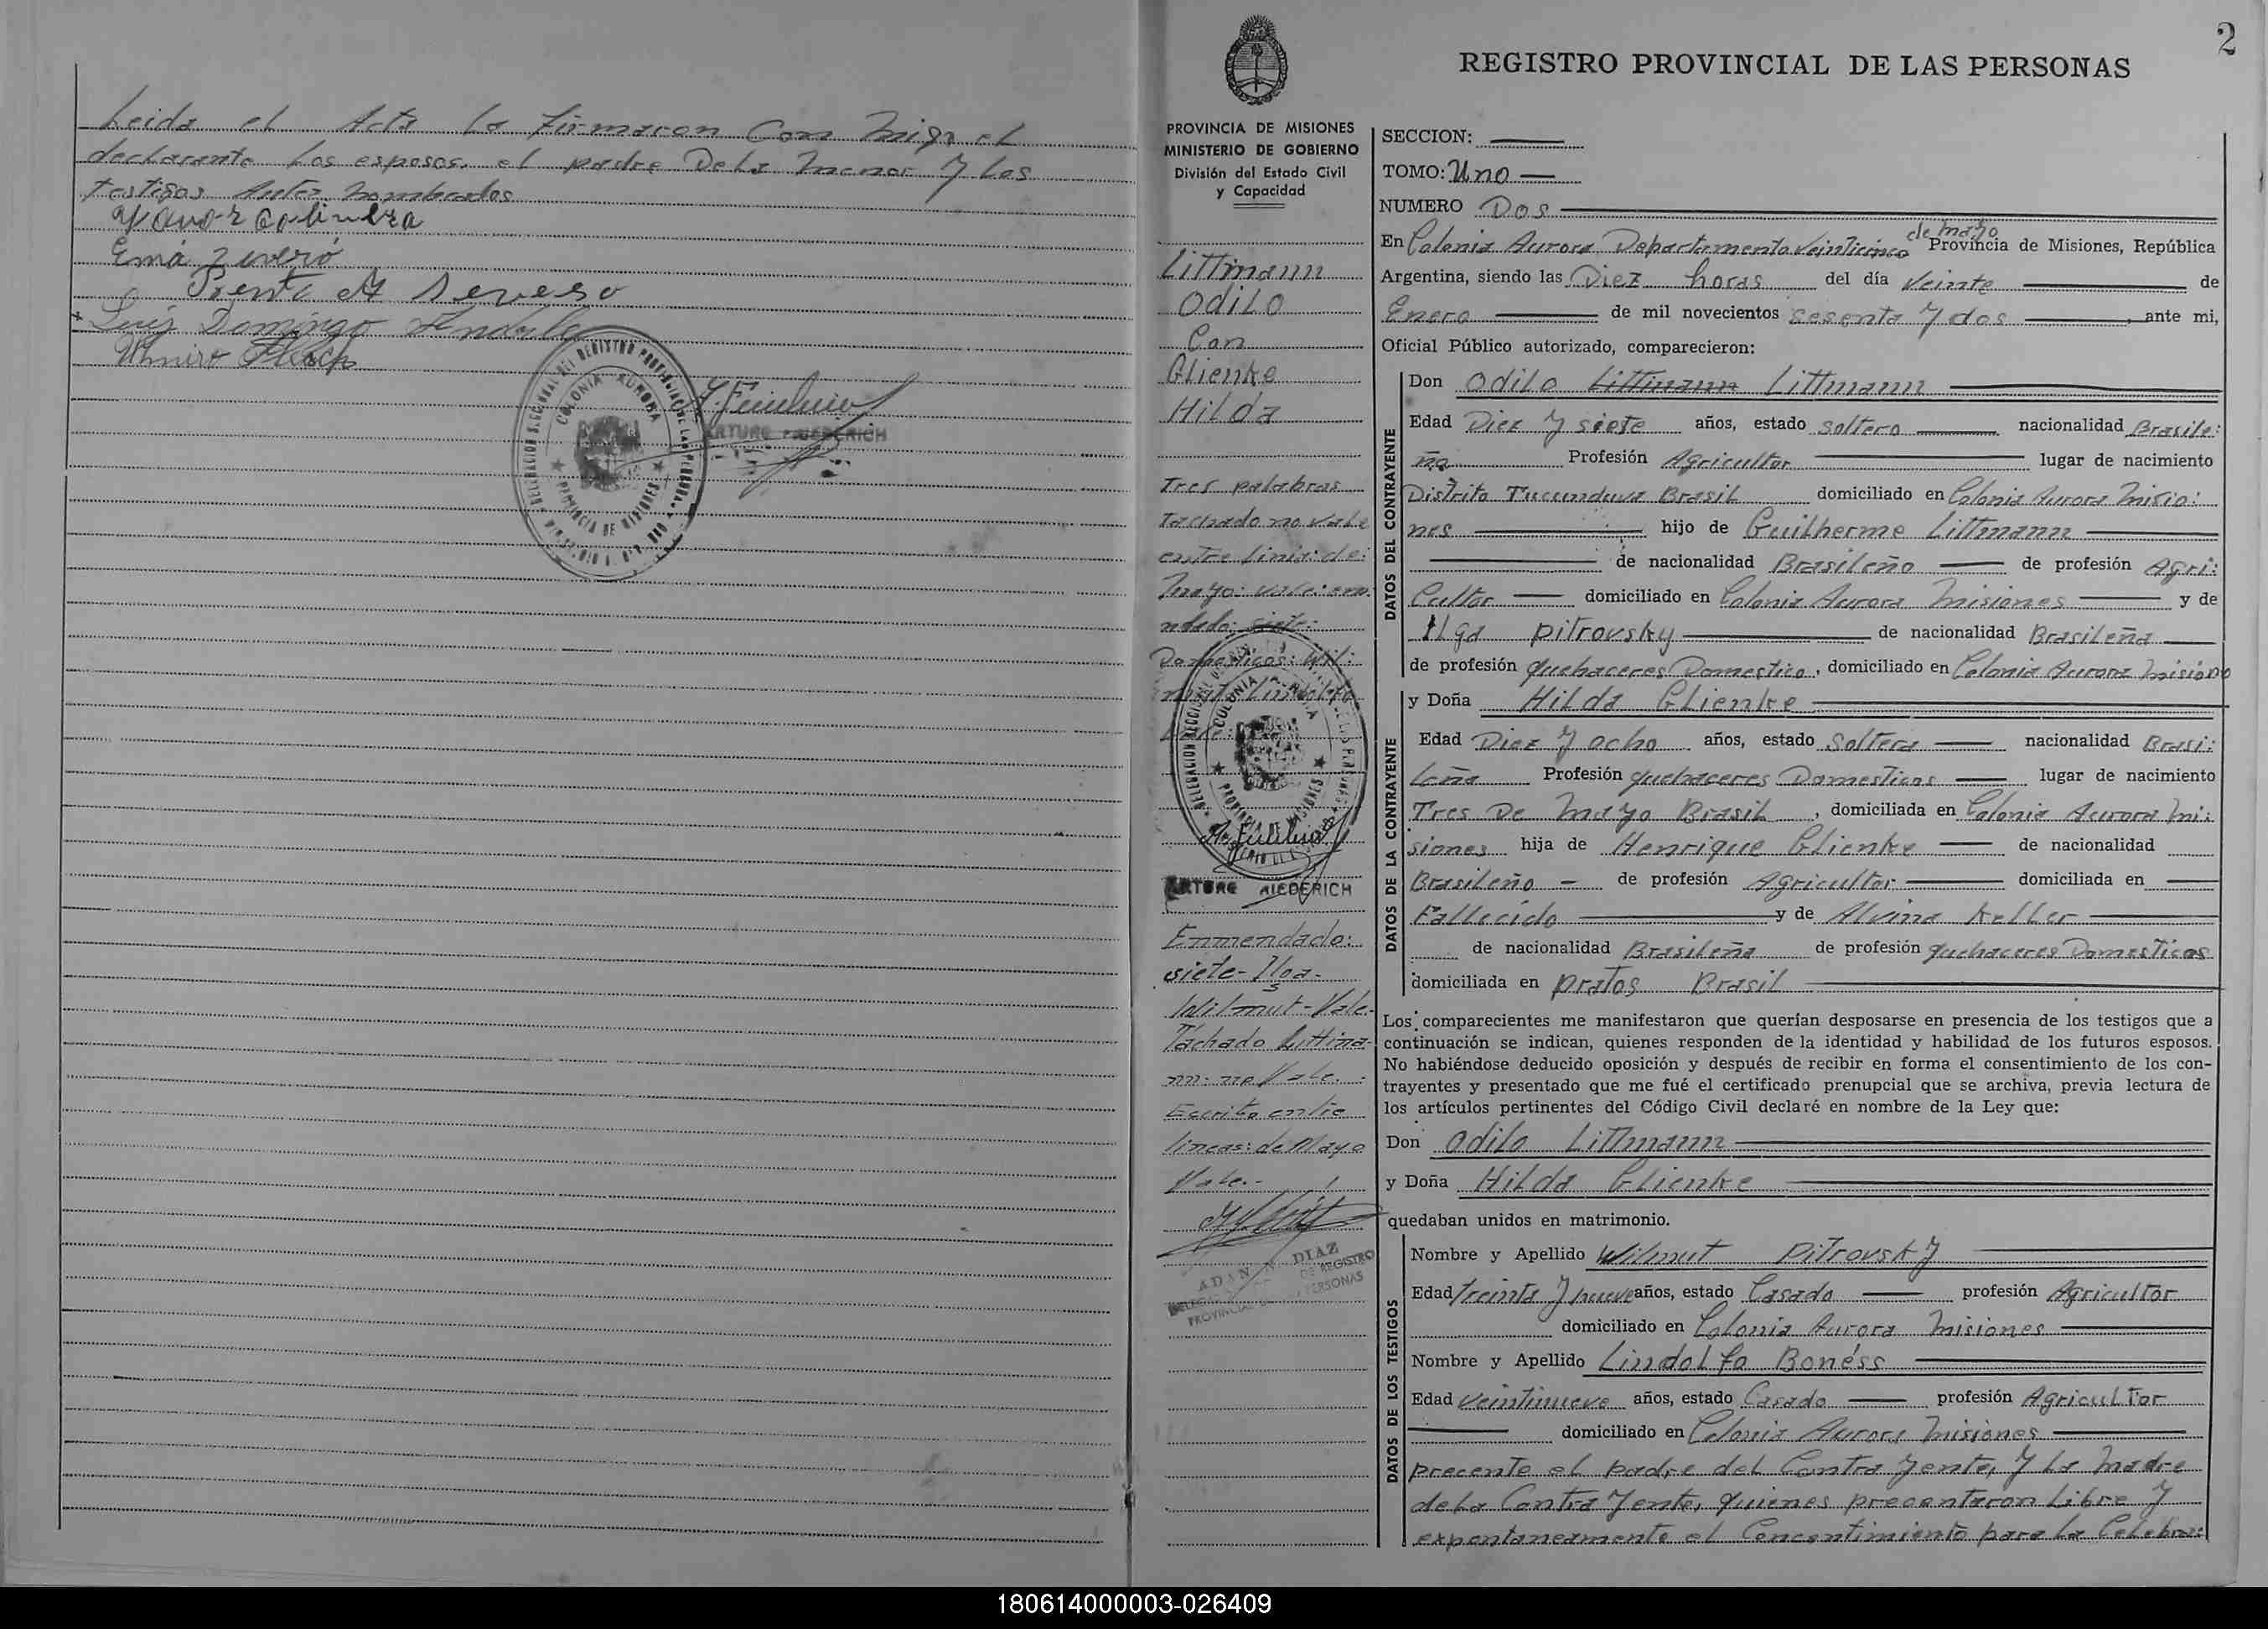 Leida el Acta la firmaron Con migo el
declarante Los esposos. el padre De la menor y los
testigos Antes nombrados
Ema
Luis Domingo
DELEGACION SECCIONAL DEL REGISTRO PROVINCIAL DE LAS PERSONAS
COLONIA AURORA
PROVINCIA DE MISIONES
2
REGISTRO PROVINCIAL DE LAS PERSONAS
PROVINCIA DE MISIONES
MINISTERIO DE GOBIERNO
División del Estado Civil
y Capacidad
Littmann
Odilo
Con
Glienke
Hilda
Tres palabras
Tachado no vale
entre linia: de:
Mayo: vale: enm:
ndado: siete:
Domesticos: Wil:
COLONIA AURORA
PROVINCIA DE MISIONES
Enmendado:
siete- Ilga-
Wilmut - Vale.
Tachado Littma-
nn: no Vale.-
Escrito entre
líneas: de Mayo
Vale.-
ADAN N. DIAZ
SECCION:
TOMO: Uno
NUMERO Dos
En Colonia Aurora Departamento Veinticinco de Mayo Provincia de Misiones, República
Argentina, siendo las Diez horas del día Veinte de
Enero de mil novecientos sesenta y dos, ante mi,
Oficial Público autorizado, comparecieron:
DATOS DEL CONTRAYENTE
Don Odilo Littmann Littmann
Edad Diez y siete años, estado soltero nacionalidad Brasile:
ña Profesión Agricultor lugar de nacimiento
Distrito Tucunduva Brasil domiciliado en Colonia Aurora Misio:
nes hijo de Guilherme Littmann
de nacionalidad Brasileño de profesión Agri:
Cultor domiciliado en Colonia Aurora Misiones y de
Ilga pitrovsky de nacionalidad Brasileña
de profesión quehaceres Domestico, domiciliado en Colonia Aurora Misiono
DATOS DE LA CONTRAYENTE
y Doña Hilda Glienke
Edad Diez y ocho años, estado Soltera nacionalidad Brasi:
Leña Profesión quehaceres Domesticos lugar de nacimiento
Tres De Mayo Brasil, domiciliada en Colonia Aurora Mi:
siones hija de Henrique Glienke de nacionalidad
Brasileño - de profesión Agricultor domiciliada en
Fallecido y de Alvina Keller
de nacionalidad Brasileña de profesión quehaceres Domesticos
domiciliada en pratos Brasil
Los comparecientes me manifestaron que querían desposarse en presencia de los testigos que a
continuación se indican, quienes responden de la identidad y habilidad de los futuros esposos.
No habiéndose deducido oposición y después de recibir en forma el consentimiento de los con-
trayentes y presentado que me fué el certificado prenupcial que se archiva, previa lectura de
los artículos pertinentes del Código Civil declaré en nombre de la Ley que:
Don Odilo Littmann
y Doña Hilda Glienke
quedaban unidos en matrimonio.
DATOS DE LOS TESTIGOS
Nombre y Apellido Wilmut pitrovsky
Edad Treinta y nueve años, estado Casado profesión Agricultor
domiciliado en Colonia Aurora Misiones
Nombre y Apellido Lindolfo Bonéss
Edad Veintinueve años, estado Casado profesión Agricultor
domiciliado en Colonia Aurora Misiones
precente el padre del Contra yente, y la Madre
de la Contra yente, quienes precentaron Libre y
expontaneamente el Concentimiento para la Celebra:
180614000003-026409